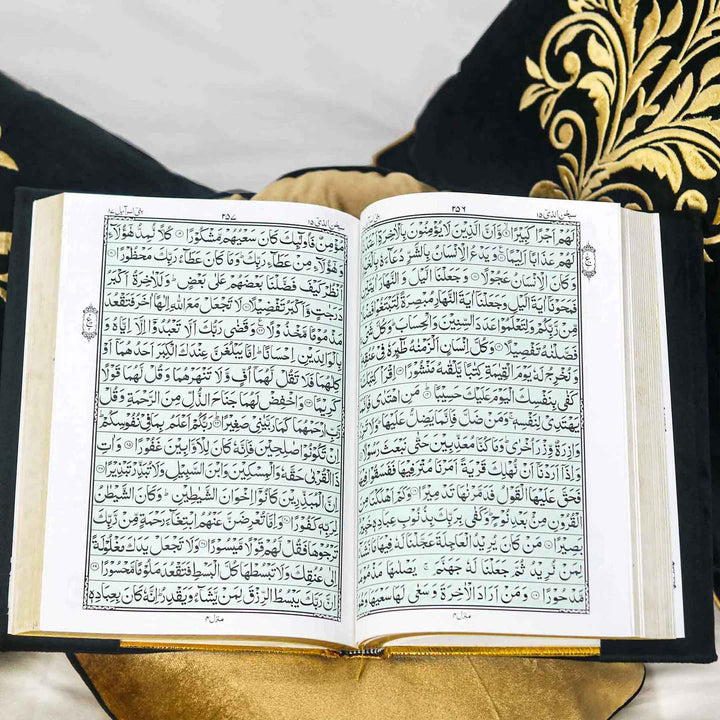 سبحن الذی ١٥
٢٥٦
لَهُمْ اَجْرًا كَبِيْرًا ۙ۹ وَّاَنَّ الَّذِيْنَ لَا يُؤْمِنُوْنَ بِالْاٰخِرَةِ
لَهُمْ عَذَابًا اَلِيْمًا ۱۰ وَيَدْعُ الْاِنْسَانُ بِالشَّرِّ دُعَآءَهٗ
وَكَانَ الْاِنْسَانُ عَجُوْلًا ۱۱ وَجَعَلْنَا الَّيْلَ وَالنَّهَارَ
فَمَحَوْنَآ اٰيَةَ الَّيْلِ وَجَعَلْنَآ اٰيَةَ النَّهَارِ مُبْصِرَةً لِّتَبْتَغُوْا
مِّنْ رَّبِّكُمْ وَلِتَعْلَمُوْا عَدَدَ السِّنِيْنَ وَالْحِسَابَ ؕ وَكُلَّ شَيْءٍ
فَصَّلْنٰهُ تَفْصِيْلًا ۱۲ وَكُلَّ اِنْسَانٍ اَلْزَمْنٰهُ طٰٓئِرَهٗ فِيْ عُنُقِهٖ
وَنُخْرِجُ لَهٗ يَوْمَ الْقِيٰمَةِ كِتٰبًا يَّلْقٰىهُ مَنْشُوْرًا ۱۳ اِقْرَاْ كِتٰبَكَ
كَفٰى بِنَفْسِكَ الْيَوْمَ عَلَيْكَ حَسِيْبًا ۱۴ مَنِ اهْتَدٰى فَاِنَّمَا
يَهْتَدِيْ لِنَفْسِهٖ ۚ وَمَنْ ضَلَّ فَاِنَّمَا يَضِلُّ عَلَيْهَا ؕ وَلَا تَزِرُ
وَازِرَةٌ وِّزْرَ اُخْرٰى ؕ وَمَا كُنَّا مُعَذِّبِيْنَ حَتّٰى نَبْعَثَ رَسُوْلًا
وَاِذَآ اَرَدْنَآ اَنْ نُّهْلِكَ قَرْيَةً اَمَرْنَا مُتْرَفِيْهَا فَفَسَقُوْا فِيْهَا
فَحَقَّ عَلَيْهَا الْقَوْلُ فَدَمَّرْنٰهَا تَدْمِيْرًا ۱۶ وَكَمْ اَهْلَكْنَا مِنَ
الْقُرُوْنِ مِنْۢ بَعْدِ نُوْحٍ ؕ وَكَفٰى بِرَبِّكَ بِذُنُوْبِ عِبَادِهٖ
بَصِيْرًا ۱۷ مَنْ كَانَ يُرِيْدُ الْعَاجِلَةَ عَجَّلْنَا لَهٗ فِيْهَا مَا نَشَآءُ
لِمَنْ نُّرِيْدُ ثُمَّ جَعَلْنَا لَهٗ جَهَنَّمَ ۚ يَصْلٰىهَا مَذْمُوْمًا
مَّدْحُوْرًا ۱۸ وَمَنْ اَرَادَ الْاٰخِرَةَ وَسَعٰى لَهَا سَعْيَهَا وَهُوَ
منزل ۴
سبحن الذی ١٥
٢٥٧
بنی اسرآءیل ١٧
مُؤْمِنٌ فَاُولٰٓئِكَ كَانَ سَعْيُهُمْ مَّشْكُوْرًا ۱۹ كُلًّا نُّمِدُّ هٰٓؤُلَآءِ
وَهٰٓؤُلَآءِ مِنْ عَطَآءِ رَبِّكَ ؕ وَمَا كَانَ عَطَآءُ رَبِّكَ مَحْظُوْرًا ۲۰
اُنْظُرْ كَيْفَ فَضَّلْنَا بَعْضَهُمْ عَلٰى بَعْضٍ ؕ وَلَلْاٰخِرَةُ اَكْبَرُ
دَرَجٰتٍ وَّاَكْبَرُ تَفْضِيْلًا ۲۱ لَا تَجْعَلْ مَعَ اللّٰهِ اِلٰهًا اٰخَرَ فَتَقْعُدَ
مَذْمُوْمًا مَّخْذُوْلًا ۲۲ وَقَضٰى رَبُّكَ اَلَّا تَعْبُدُوْٓا اِلَّآ اِيَّاهُ وَ
بِالْوَالِدَيْنِ اِحْسَانًا ؕ اِمَّا يَبْلُغَنَّ عِنْدَكَ الْكِبَرَ اَحَدُهُمَآ اَوْ
كِلٰهُمَا فَلَا تَقُلْ لَّهُمَآ اُفٍّ وَّلَا تَنْهَرْهُمَا وَقُلْ لَّهُمَا قَوْلًا
كَرِيْمًا ۲۳ وَاخْفِضْ لَهُمَا جَنَاحَ الذُّلِّ مِنَ الرَّحْمَةِ وَقُلْ
رَّبِّ ارْحَمْهُمَا كَمَا رَبَّيٰنِيْ صَغِيْرًا ۲۴ رَبُّكُمْ اَعْلَمُ بِمَا فِيْ نُفُوْسِكُمْ ؕ
اِنْ تَكُوْنُوْا صٰلِحِيْنَ فَاِنَّهٗ كَانَ لِلْاَوَّابِيْنَ غَفُوْرًا ۲۵ وَاٰتِ
ذَا الْقُرْبٰى حَقَّهٗ وَالْمِسْكِيْنَ وَابْنَ السَّبِيْلِ وَلَا تُبَذِّرْ تَبْذِيْرًا ۲۶
اِنَّ الْمُبَذِّرِيْنَ كَانُوْٓا اِخْوَانَ الشَّيٰطِيْنِ ؕ وَكَانَ الشَّيْطٰنُ
لِرَبِّهٖ كَفُوْرًا ۲۷ وَاِمَّا تُعْرِضَنَّ عَنْهُمُ ابْتِغَآءَ رَحْمَةٍ مِّنْ رَّبِّكَ
تَرْجُوْهَا فَقُلْ لَّهُمْ قَوْلًا مَّيْسُوْرًا ۲۸ وَلَا تَجْعَلْ يَدَكَ مَغْلُوْلَةً
اِلٰى عُنُقِكَ وَلَا تَبْسُطْهَا كُلَّ الْبَسْطِ فَتَقْعُدَ مَلُوْمًا مَّحْسُوْرًا ۲۹
اِنَّ رَبَّكَ يَبْسُطُ الرِّزْقَ لِمَنْ يَّشَآءُ وَيَقْدِرُ ؕ اِنَّهٗ كَانَ بِعِبَادِهٖ
منزل ۴